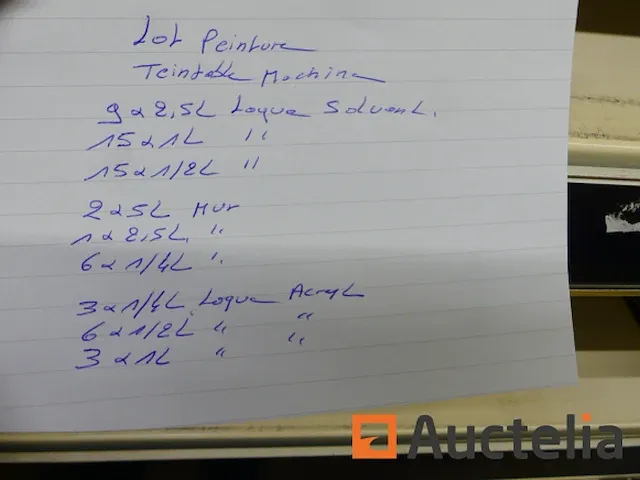 Lot Peinture
Teintable Machine
9 x 2,5L Laque Solvent.
15 x 1L "
15 x 1/2L "
2 x 5L Mur
1 x 2,5L "
6 x 1/4L "
3 x 1/4L Laque Acryl
6 x 1/2L " "
3 x 1L " "
Auctelia